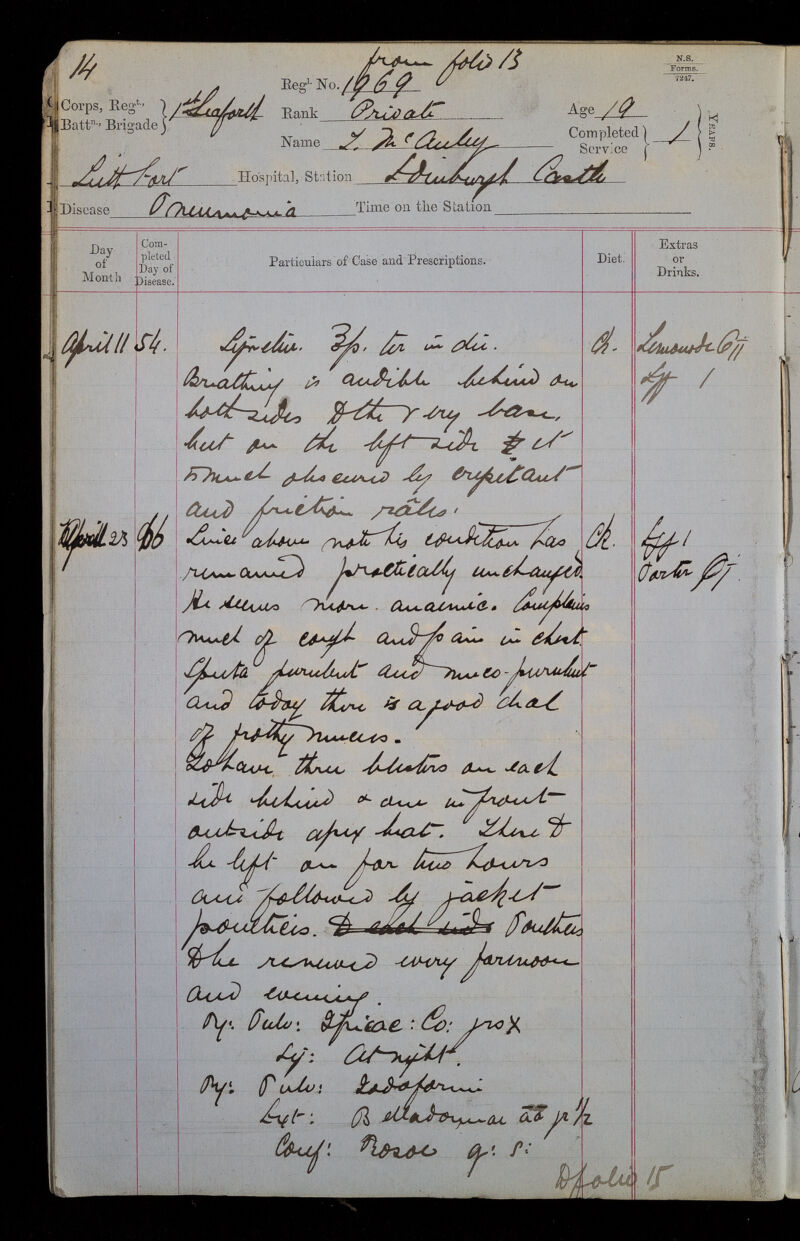 14
from folio 13
N.S.
Forms.
7247.
Regl. No. 1969
Corps, Regt., Battn., Brigade } 1st Seaforth
Rank Private
Age 19
Name J. McAuley
Completed Service } 1 } Years.
Leith Fort Hospital, Station Edinburgh Castle
Disease Pneumonia Time on the Station
Day of Month
Completed Day of Disease.
Particulars of Case and Prescriptions.
Diet.
Extras or Drinks.
April 11 54. ʒp. ter in die. Ch. Lemonade Oii
Breathing is audible behind on Egg 1
both sides to the very base,
but on the left side it
is much obscured by crepitant
and friction râles.
April 23 66 Since above note his condition has Ch. Egg 1
remained practically unchanged. Porter Oj
He seems more anaemic. Complains
much of cough and pain in chest.
Sputa purulent and muco-purulent
and today there is a good deal
of frothy mucus.
To have three blisters on each
side behind & one in front
outside apex beat. These to
be left on for two hours
and followed by jacket
poultices. to each side Poultices
to be renewed every forenoon
and evening.
Rx: Pulv: Ipicac: Co: grs X
Sig: At night.
Rx: Pulv: Iodoformi
Ext: Belladonnae āā gr ½
Conf: Rosae q: s:
To folio 15